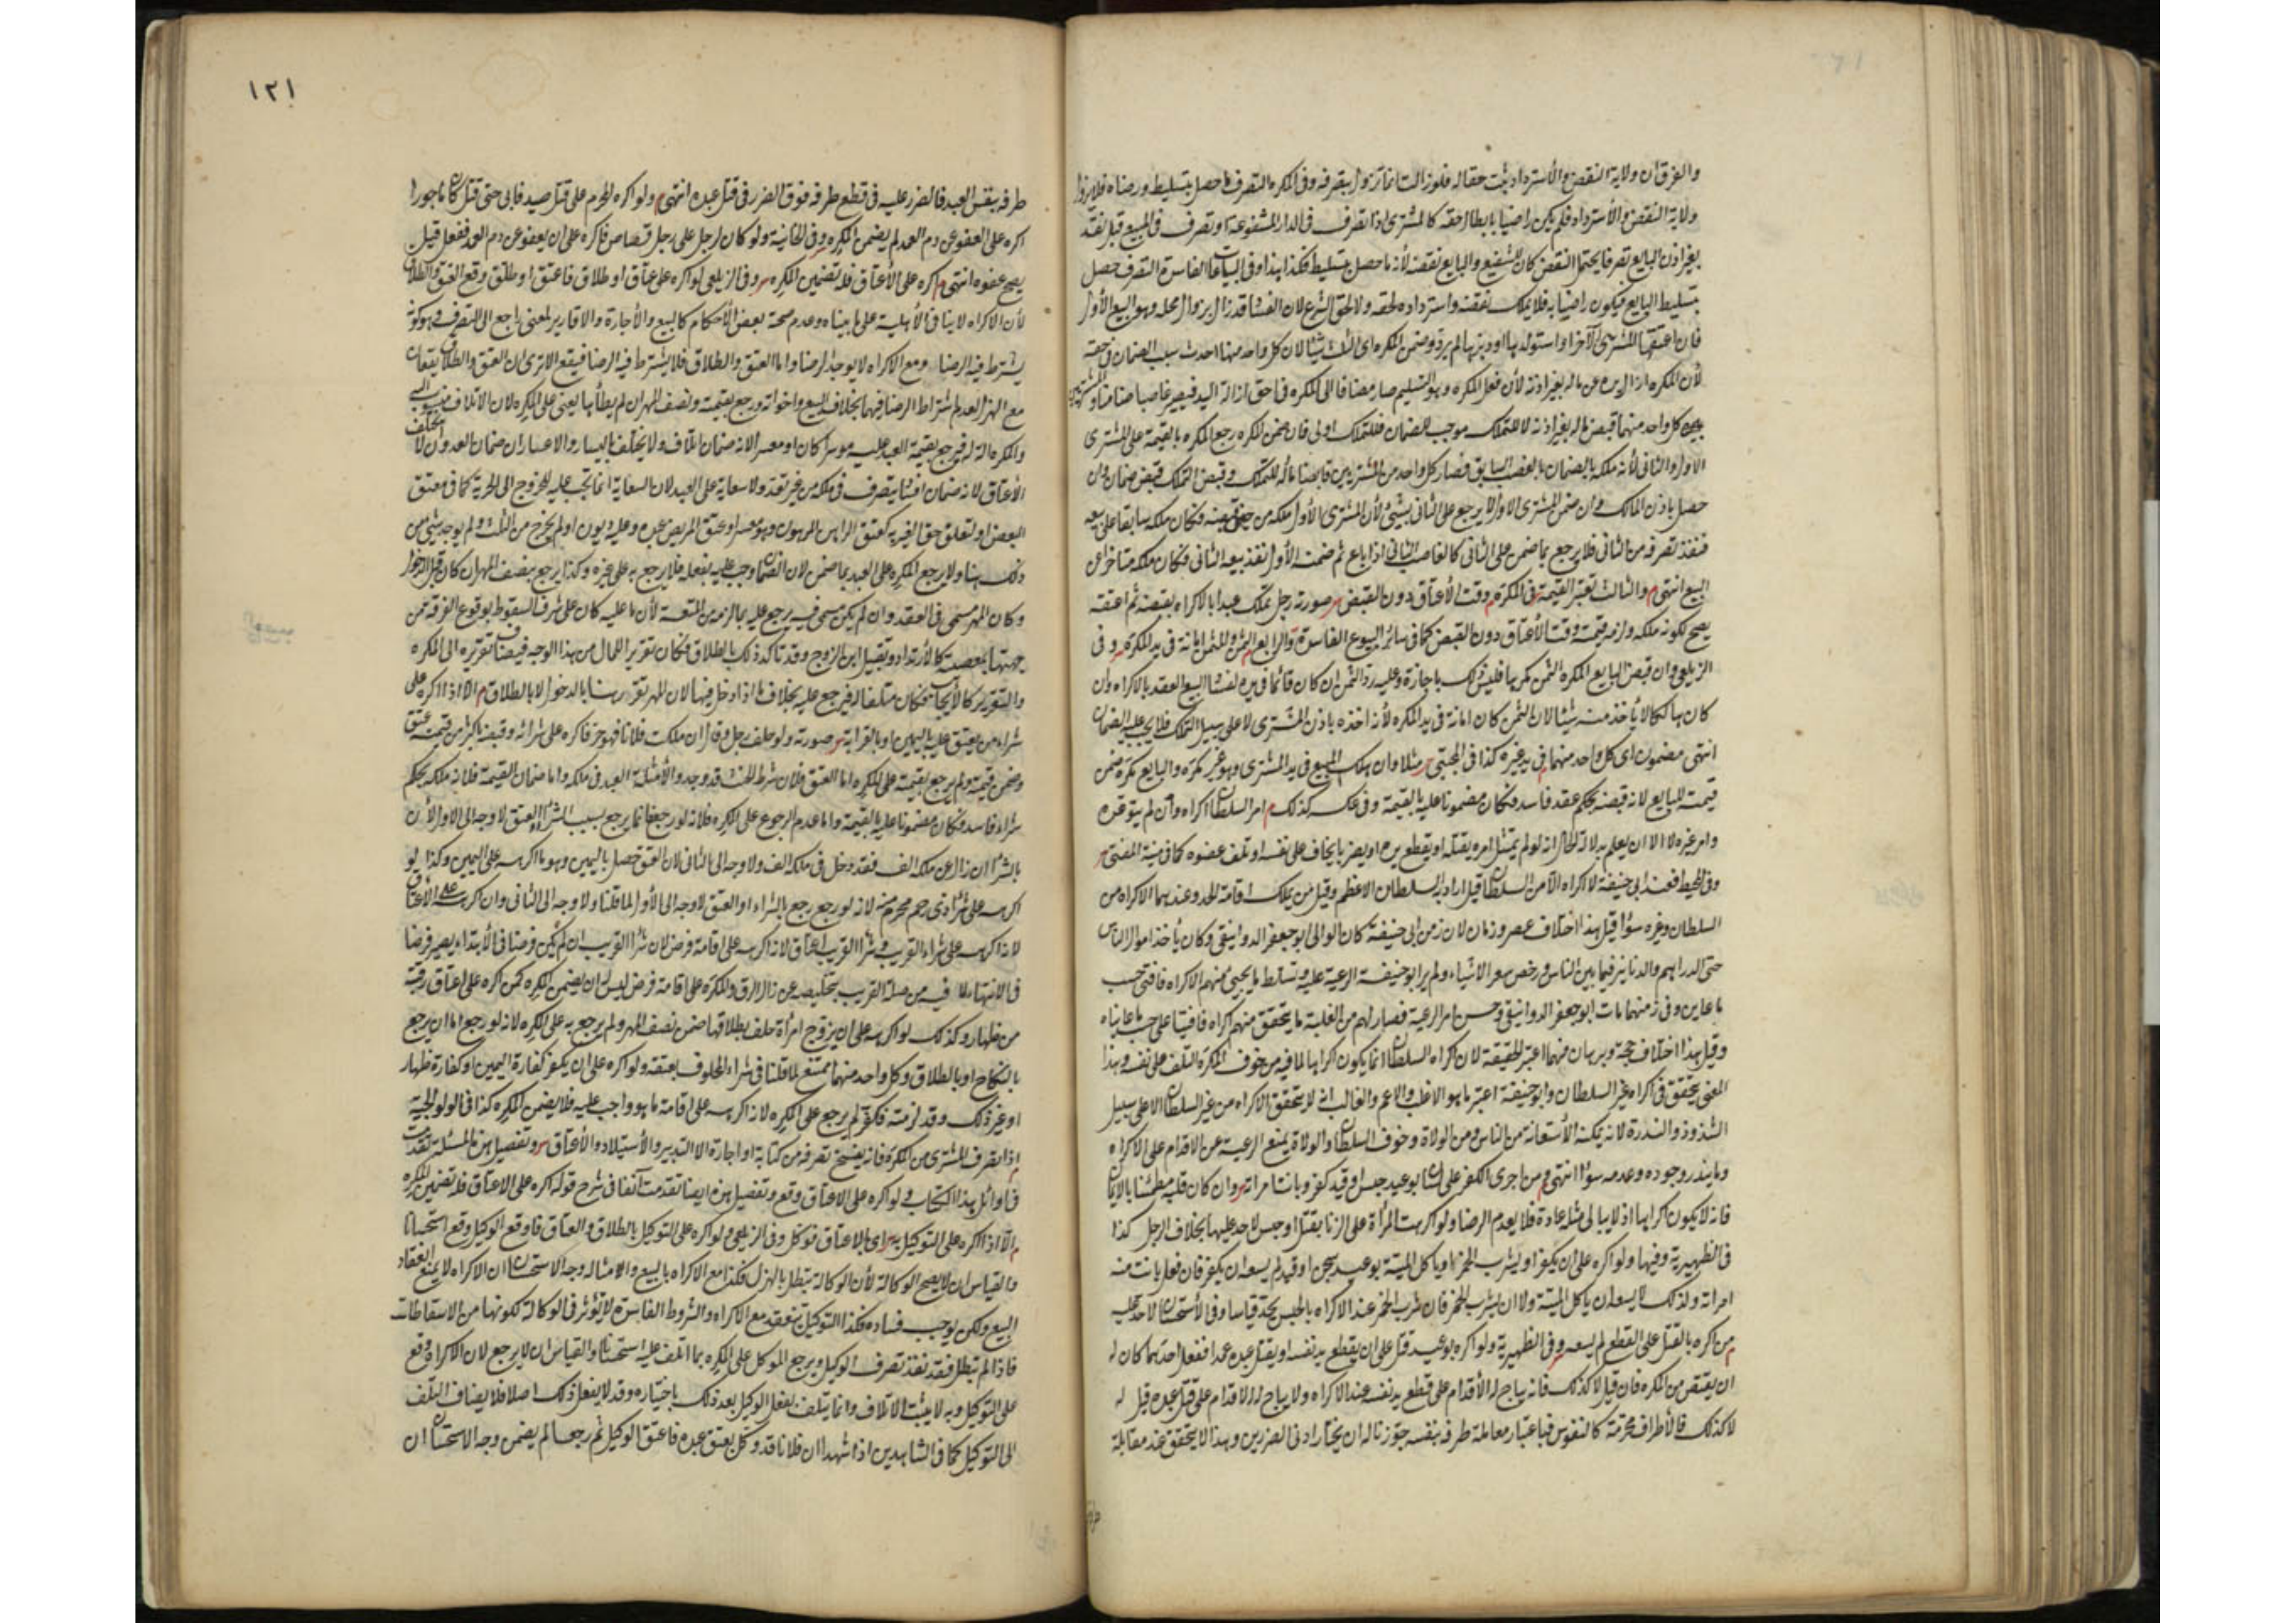 والفرق ان ولاية النقض والاسترداد ثبت حقا له فلو زالت انما تزول بتصرفه وفي المكره التصرف ما حصل بتسليط ورضاه فلا يزول
ولاية النقض والاسترداد فلم يكن راضيا بابطال حقه كالمشترى اذا تصرف في الدار المشفوعة او تصرف في المبيع قبل نقد
بغير اذن البايع تصرفا يحتمل النقض كان للشفيع والبايع نقضه لأنه ما حصل بتسليط فكذا هذا وفي البياعات الفاسدة التصرف حصل
بتسليط البايع فيكون راضيا به فلا يملك نقضه واسترداده لحقه ولا لحق الشرع لان الفساد قد زال بزوال محله وهو البيع الأول
فان اعتقها المشترى الآخر او استولدها او دبرها لم يرد وضمن المكره اى الثلث شيئا لان كل واحد منهما احدث سبب الضمان في حقه
لأن المكره ازال يده عن ماله بغير اذنه لأن فعل المكره وهو التسليم صار مضافا الى المكره في حق ازالة اليد فيصير غاصبا ضامنا
كل واحد منهما قبض ماله بغير اذنه لا للتملك موجب للضمان فللتملك اولى فان ضمن المكره رجع المكره بالقيمة على المشترى
الاول والثانى لأنه ملكه بالضمان بالغصب السابق فصار كل واحد من المشتريين قابضا ماله للتملك وقبض التملك قبض ضمان وان
حصل باذن المالك وان ضمن المشترى الاول لا يرجع على الثانى بشئ لأن المشترى الأول ملكه من حين قبضه فكان ملكه سابقا على بيعه
فنفذ تصرفه من الثانى فلا يرجع بما ضمن على الثانى كالغاصب الثانى اذا باع ثم ضمنه الأول نفذ بيعه الثانى وكان ملكه متاخرا عن
البيع انتهى م والثالث تعتبر القيمة في المكره م وقت الأعتاق دون القبض صورته رجل تملك عبدا بالاكراه بقبضه ثم اعتقه
يصح لكونه ملكه ولزمه قيمته وقت الأعتاق دون القبض كما في سائر البيوع الفاسدة والرابع الثمن والمثمن امانة في يد المكره وفي
الزيلعى وان قبض البايع المكره الثمن مكرها فليس ذلك باجازة وعليه رد الثمن ان كان قائما في يده لفساد البيع العقد بالاكراه وان
كان هالكا لا يأخذ منه شيئا لان الثمن كان امانة في يد المكره لأنه اخذه باذن المشترى لا على سبيل التملك فلا يجب عليه الضمان
انتهى مضمون اى كل واحد منهما في يد غيره كذا في المجتبى مثلا وان هلك المبيع في يد المشترى وهو غير مكره والبايع مكره ضمن
قيمته للبايع لانه قبضه بحكم عقد فاسد فكان مضمونا عليه بالقيمة وفي عكسه كذلك م امر السلطان اكراه وان لم يتوعده
وامر غيره لا الا ان يعلم بدلالة الحال انه لو لم يمتثل امره يقتله او يقطع يده او يضربه ما يخاف على نفسه او تلف عضوه كما في منية المفتى
وفي المحيط فعند ابى حنيفة لا اكراه الا من السلطان قيل اراد به السلطان الاعظم وقيل من يملك اقامة الحد وعندهما الاكراه من
السلطان وغيره سواء قيل هذا اختلاف عصر وزمان لان زمن ابى حنيفة كان الوالى ابو جعفر الدوانيقى وكان يأخذ اموال الناس
حتى الدراهم والدنانير فيما بين الناس ورخص سعر الاشياء ولم ير ابو حنيفة الرعية عليه وتسلط ما يجيئ منهم الاكراه فافتى حسب
ما عاين وفي زمنهما مات ابو جعفر الدوانيقى وحسن امر الرعية فصار لهم من الغلبة ما يتحقق منهم اكراه فافتيا على حسب ما عايناه
وقيل هذا اختلاف حجة وبرهان فهما اعتبرا الحقيقة لان اكراه السلطان انما يكون اكراها لما فيه من خوف المكره التلف على نفسه وهذا
المعنى يتحقق في اكراه غير السلطان وابو حنيفة اعتبر ما هو الاغلب والاعم والغالب انه لا يتحقق الاكراه من غير السلطان الا على سبيل
الشذوذ والندرة لانه يمكنه الأستعانة من الناس ومن الولاة وخوف السلطان والولاة يمنع الرعية عن الاقدام على الاكراه
وما يندر وجوده وعدمه سواء انتهى م من اجرى الكفر على لسانه بوعيد حبس او قيد كفر وبانت امراته وان كان قلبه مطمئنا بالايمان
فانه لا يكون اكراها اذ لا يبالى مثله عادة فلا يعدم الرضا ولو اكرهت المرأة على الزنا بقتل او حبس لا حد عليها بخلاف الرجل كذا
في الظهيرية وفيها ولو اكره على ان يكفر او ليشرب الخمر او يأكل الميتة بوعيد سجن او قيد لم يسعه ان يكفر فان فعل بانت منه
امراته وكذلك لا يسعه ان يأكل الميتة ولا ان يشرب الخمر فان شرب الخمر عند الاكراه بالحبس يحد قياسا وفي الأستحسان لا حد عليه
م من اكره بالقتل على القطع لم يسعه وفي الظهيرية ولو اكره بوعيد قتل على ان يقطع يد نفسه او يقتل عبده عمدا ففعل احدهما كان له
ان يقتص من المكره فان قيل لا كذلك فانه يباح له الأقدام على قطع يد نفسه عند الاكراه ولا يباح له الاقدام على قتل عبده قيل له
لا كذلك فالأطراف محترمة كالنفوس فباعتبار معاملة طرفه بنفسه جوزنا له ان يختار ادنى الضررين وهذا لا يتحقق عند مقابلة
١٢١
طرفه بنفس العبد فالضرر عليه في قطع طرفه فوق الضرر في قتل عبده انتهى م ولو اكره المحرم على قتل صيد فابى حتى قتل كان مأجورا
اكره على العفو عن دم العمد لم يضمن المكره وفي الخانية ولو كان لرجل على رجل قصاص فاكره على ان يعفو عن دم العمد ففعل قيل
يصح عفوه انتهى م اكره على الأعتاق فله تضمين المكره وفي الزيلعى لو اكره على عتاق او طلاق فاعتق او طلق وقع العتق والطلاق
لأن الاكراه لا ينافي الأهلية على ما بيناه وعدم صحة بعض الأحكام كالبيع والأجارة والاقارير لمعنى راجع الى التصرف وهو كونه
يشترط فيه الرضا ومع الاكراه لا يوجد الرضا واما العتق والطلاق فلا يشترط فيه الرضا فيقع الا ترى ان العتق والطلاق يقعان
مع الهزل لعدم اشتراط الرضا فيهما بخلاف البيع واخواته ورجع بقيمته ونصف المهر ان لم يطأها يعنى على المكره لان الاتلاف منسوب اليه
والمكره آلة له فيرجع بقيمة العبد عليه موسرا كان او معسرا لانه ضمان اتلاف ولا يختلف باليسار والاعسار ان ضمان العدوان لا يختلف
الأعتاق لانه ضمان افساد بتصرف في ملكه من غير تعد ولا سعاية على العبد لان السعاية انما تجب عليه للخروج الى الحرية كما في معتق
البعض او لتعلق حق الغير به كعتق الراهن المرهون وهو معسر او عتق المريض عبده وعليه ديون او لم يخرج من الثلث ولم يوجد شئ من
ذلك هنا ولا يرجع المكره على العبد بما ضمن لان الضمان وجب عليه بفعله فلا يرجع به على غيره وكذا يرجع بنصف المهر ان كان قبل الدخول
وكان المهر مسمى في العقد وان لم يكن مسمى فيه يرجع عليه بما لزمه من المتعة لأن ما عليه كان على شرف السقوط بوقوع الفرقة من
جهتها بمعصية كالأرتداد وتقبيل ابن الزوج وقد تأكد ذلك بالطلاق فكان تقريرا للمال من هذا الوجه فيضاف تقريره الى المكره
والتقرير كالأيجاب فكان متلفا له فيرجع عليه بخلاف ما اذا دخل بها لان المهر تقرر هنا بالدخول لا بالطلاق م الا اذا اكره على
شراء من يعتق عليه باليمين او بالقرابة صورته ولو حلف رجل وقال ان ملكت فلانا فهو حر فاكره على شرائه وقبضه باكثر من قيمته عتق
وضمن قيمته ولم يرجع بقيمته على المكره اما العتق فلان شرط الحنث قد وجد والأمتثلة العبد في ملكه واما ضمان القيمة فلانه ملكه بحكم
شراء فاسد فكان مضمونا عليه بالقيمة واما عدم الرجوع على المكره فلانه لو رجع فانما يرجع بسبب الشراء او العتق لا وجه الى الاول لأن
بالشراء ان زال عن ملكه الف فقد دخل في ملكه الف ولا وجه الى الثانى لان العتق حصل باليمين وهو ما اكرهه على اليمين وكذا لو
اكرهه على شراء ذى رحم محرم منه لانه لو رجع رجع بالشراء او العتق لا وجه الى الأول لما قلنا ولا وجه الى الثانى وان اكرهه على الأعتاق
لانه اكرهه على شراء القريب وشراء القريب اعتاق لانه اكرهه على اقامة فرض لان شراء القريب ان لم يكن فرضا في الأبتداء يصير فرضا
في الانتهاء لما فيه من صلة القريب بتخليصه عن ذل الرق والمكره على اقامة فرض ليس له ان يضمن المكره كمن اكره على اعتاق رقبة
من ظهار وكذلك لو اكرهه على ان يزوج امرأة حلف بطلاقها ضمن نصف المهر ولم يرجع به على المكره لانه لو رجع اما ان يرجع
بالنكاح او بالطلاق وكل واحد منهما ممتنع لما قلنا في شراء المحلوف بعتقه ولو اكره على ان يكفر كفارة اليمين او كفارة ظهار
او غير ذلك وقد لزمته فكفر لم يرجع على المكره لانه اكرهه على اقامة ما هو واجب عليه فلا يضمن المكره كذا في الولوالجية
م اذا تصرف المشترى من المكره فانه يفسخ تصرفه من كتابة او اجارة الا التدبير والأستيلاد والأعتاق وتفصيل هذه المسئلة تقدمت
في اوائل هذا الكتاب م ولو اكره على الاعتاق وقع وتفصيل هذه ايضا تقدمت آنفا في شرح قوله اكره على الاعتاق فله تضمين المكره
م الا اذا اكره على التوكيل به اى بالاعتاق فوكل وفي الزيلعى ولو اكره على التوكيل بالطلاق والعتاق فاوقع الوكيل وقع استحسانا
والقياس ان لا يصح الوكالة لأن الوكالة تبطل بالهزل فكذا مع الاكراه بالبيع وامثاله وجه الاستحسان ان الاكراه لا يمنع انعقاد
البيع ولكن يوجب فساده فكذا التوكيل ينعقد مع الاكراه والشروط الفاسدة لا تؤثر في الوكالة لكونها من الاسقاطات
فاذا لم تبطل فقد نفذ تصرف الوكيل ويرجع الموكل على المكره بما اتلف عليه استحسانا والقياس ان لا يرجع لان الاكراه وقع
على التوكيل وبه لا يثبت الأتلاف وانما يتلف بفعل الوكيل بعد ذلك باختياره وقد لا يفعل ذلك اصلا فلا يضاف التلف
الى التوكيل كما في الشاهدين اذا شهدا ان فلانا قد وكل بعتق عبده فاعتق الوكيل ثم رجعا لم يضمن وجه الاستحسان ان